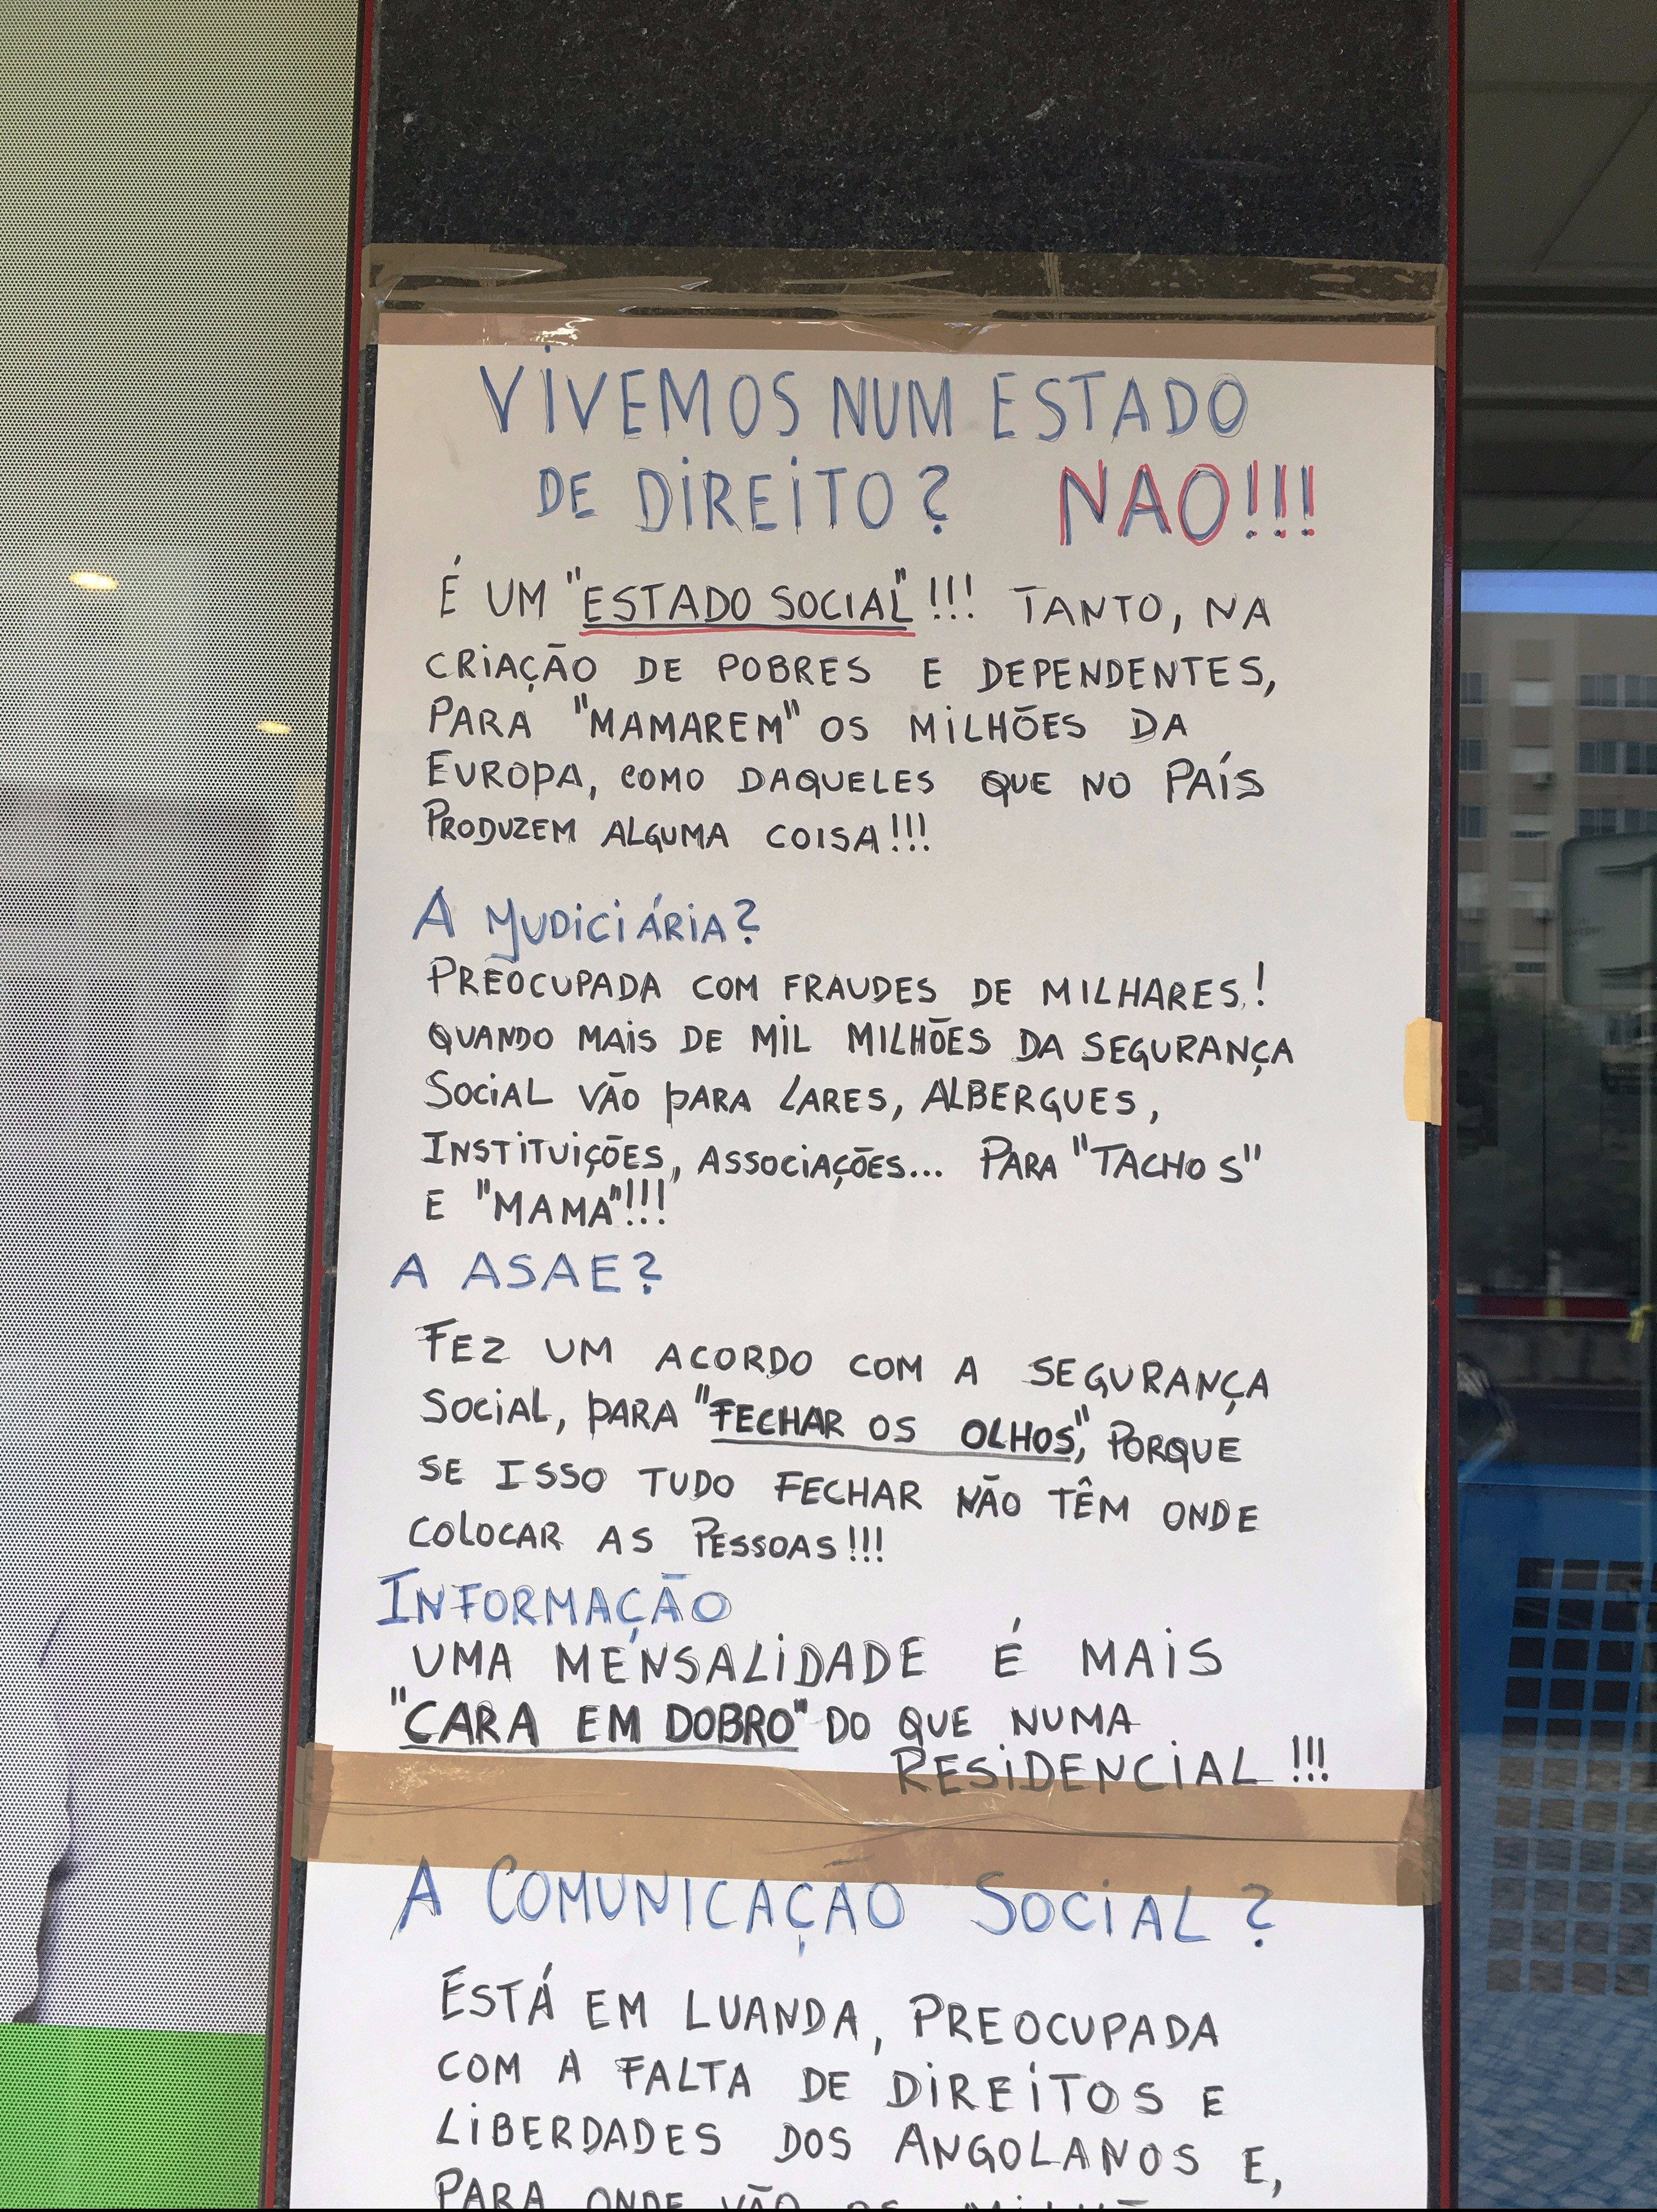 VIVEMOS NUM ESTADO
DE DIREITO? NAO!!!
É UM "ESTADO SOCIAL"!!! TANTO, NA
CRIAÇÃO DE POBRES E DEPENDENTES,
PARA "MAMAREM" OS MILHÕES DA
EUROPA, COMO DAQUELES QUE NO PAÍS
PRODUZEM ALGUMA COISA!!!
A JUDICIÁRIA?
PREOCUPADA COM FRAUDES DE MILHARES!
QUANDO MAIS DE MIL MILHÕES DA SEGURANÇA
SOCIAL VÃO PARA LARES, ALBERGUES,
INSTITUIÇÕES, ASSOCIAÇÕES... PARA "TACHOS"
E "MAMA"!!!
A ASAE?
FEZ UM ACORDO COM A SEGURANÇA
SOCIAL, PARA "FECHAR OS OLHOS", PORQUE
SE ISSO TUDO FECHAR NÃO TÊM ONDE
COLOCAR AS PESSOAS!!!
INFORMAÇÃO
UMA MENSALIDADE É MAIS
"CARA EM DOBRO" DO QUE NUMA
RESIDENCIAL!!!
A COMUNICAÇÃO SOCIAL?
ESTÁ EM LUANDA, PREOCUPADA
COM A FALTA DE DIREITOS E
LIBERDADES DOS ANGOLANOS E,
PARA ONDE VÃO OS